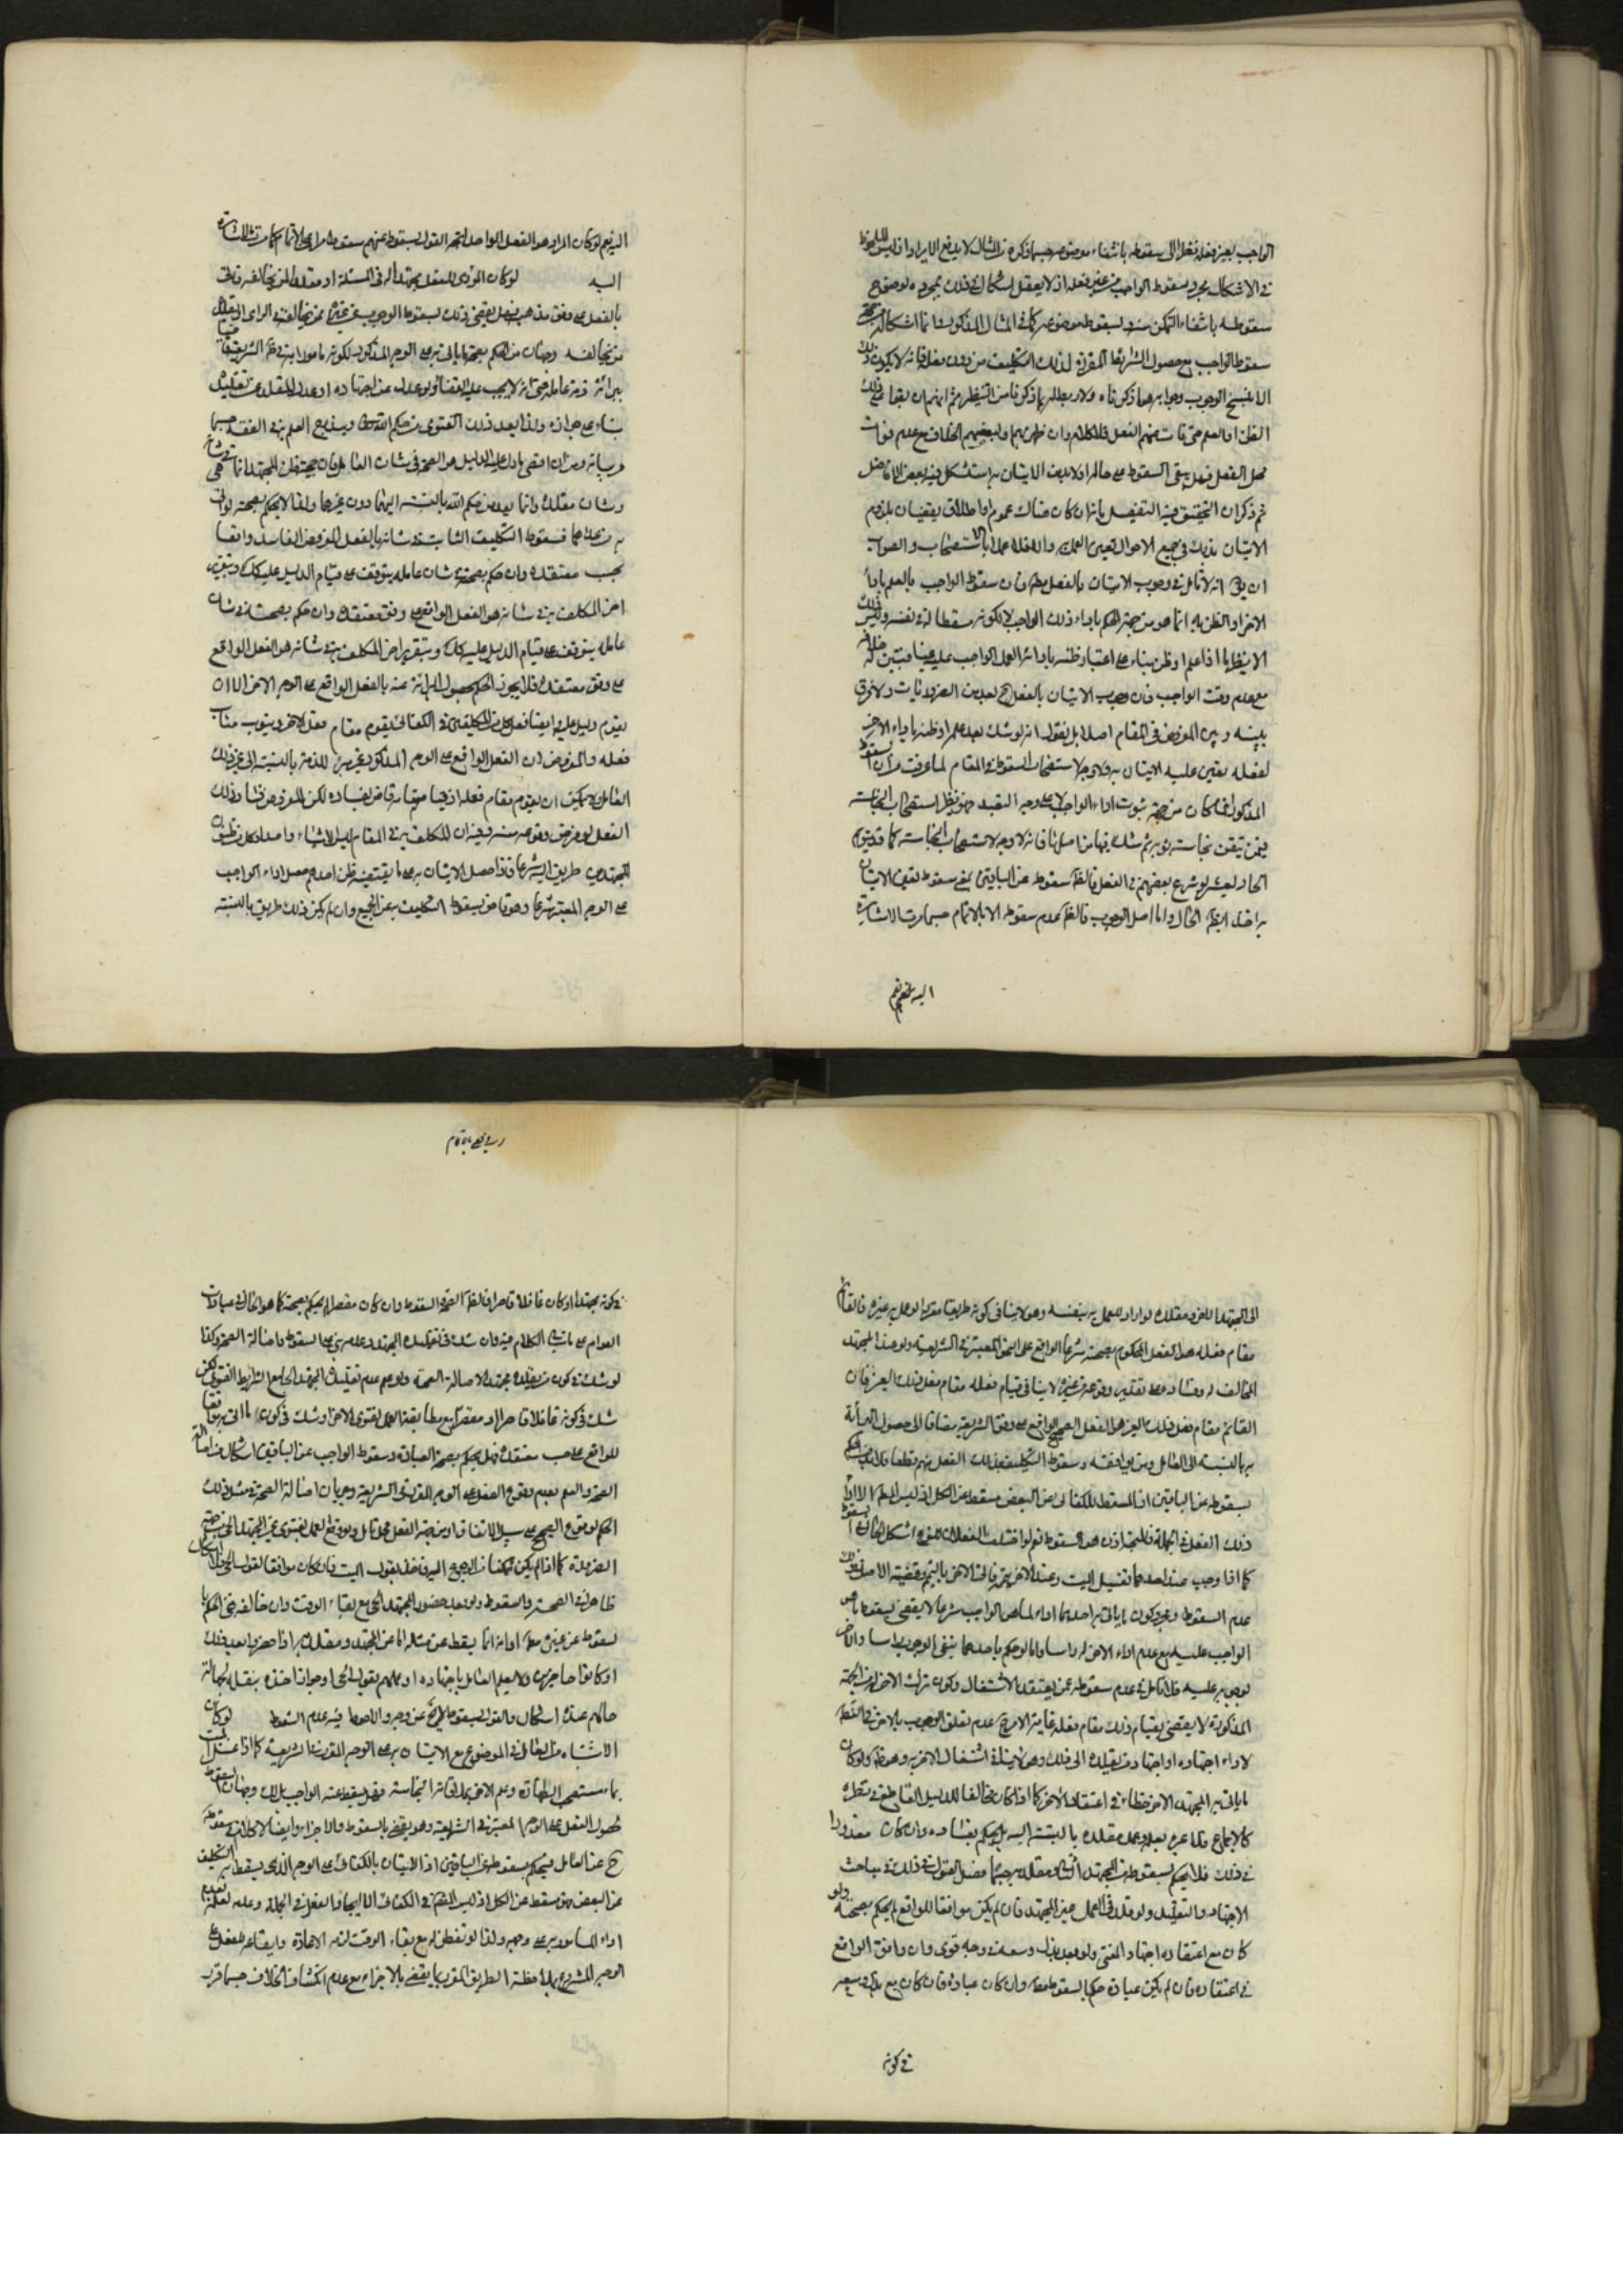 الواجب بعين فعله نظرا الى سقوطه بانتفاء موضوعه حسبما ذكره في المثال لا يدفع الايراد اذ ليس الملحوظ
في الاشكال مجرد سقوط الواجب من غير فعله اذ لا يعقل اشكال في ذلك بمجرده لوضوح
سقوطه بانتفاء التمكن منه وبسقوط موضوعه كما في المثال المذكور وانما اشكاله من جهة
سقوط الواجب مع حصول الشرائط المقررة لذلك التكليف من دون فعله فانه لا يكون ذلك
الا بنسخ الوجوب وجوابه هو ما ذكرناه
الظن او العلم حتى فات منهم الفعل فلا كلام وان ظهر لهم او لبعضهم الخلاف مع عدم فوات
محل الفعل فهل يبقى السقوط على حاله او لا بد من الاتيان به استشكل فيه بعض الافاضل
ثم ذكر ان التحقيق فيه التفصيل بانه ان كان هناك عموم او اطلاق يقضيان بلزوم
الاتيان بذلك في جميع الاحوال تعين العمل به والا فلا عملا بالاستصحاب والصواب
ان يقال انه لا تامل في وجوب الاتيان بالفعل مطلقا فان سقوط الواجب بالعلم باداء
الاخر او الظن به انما هو من جهة الحكم باداء ذلك الواجب لا لكونه مسقطا له في نفسه وليس ذلك
الا نظير ما اذا علم او ظن بناء على اعتبار ظنه باداء العمل الواجب عليه عينا فتبين له خلافه
مع عدم فوت الواجب فان وجوب الاتيان بالفعل ح يعد من الضروريات ولا فرق
بينه وبين المفروض في المقام اصلا بل نقول انه لو شك بعد علمه او ظنه باداء الاخر
لفعله تعين عليه الاتيان به ولا وجه لاستصحاب السقوط في المقام لما عرفت من ان السقوط
المذكور انما كان من جهة ثبوت اداء الواجب لا على وجه التقييد فهو نظير استصحاب النجاسة
فيمن تيقن نجاسة ثوبه ثم شك فيها من اصلها فانه لا وجه لاستصحاب النجاسة كما قد يتوهم
الحادي عشر لو شرع بعضهم في الفعل فالظاهر سقوطه عن الباقين بمعنى سقوط تعين الاتيان
به اخذا بظاهر الحال واما اصل الوجوب فالظاهر عدم سقوطه الا بالاتمام حسبما مرت الاشارة
اليه نعم
اليه نعم لو كان المراد هو الفعل الواحد اتجه القول بسقوطه عنهم سقوطا مراعى بالاتمام كما مرت الاشارة
اليه لو كان المؤدي للفعل مجتهدا في المسئلة او مقلدا لمن يخالفه فاتى
بالفعل على وفق مذهبه فهل يقضي ذلك بسقوط الوجوب عن غيره ممن يخالفه في الراي او يقلد
من يخالفه وجهان من الحكم بصحة ما ياتي به على الوجه المذكور لكونه مامورا به في ظاهر الشريعة
ببرائة ذمة عامله حتى انه لا يجب عليه القضاء لو عدل عن اجتهاده او عدل المقلد عن تقليده
بناء على جوازه ولذا يعد ذلك الفتوى من حكم الله ويندرج العلم به في الفقه حسبما
مر بيانه ومن ان اقصى ما دل عليه الدليل هو الصحة في شان العامل فان حجية ظن المجتهد انما هي في شانه
وشان مقلده وانما يعد من حكم الله بالنسبة اليهما دون غيرهما ولذا لا يحكم بصحته لو اتى
به من عداهما فسقوط التكليف الثابت في شانه بالفعل المفروض الفاسد واقعا
بحسب معتقده وان حكم بصحته في شان عامله يتوقف على قيام الدليل عليه كك
اخر المكلف به في شانه هو الفعل الواقع على وفق معتقده وان حكم بصحته في شان
عامله يتوقف على قيام الدليل عليه كك وبتقرير اخر المكلف به في شانه هو الفعل الواقع
على وفق معتقده فلا يجوز الحكم بحصول البرائة عنه بالفعل الواقع على الوجه الاخر الا ان
يقوم دليل عليه وايضا فعل كل من المكلفين في الكفائي يقوم مقام فعل الاخر وينوب مناب
فعله والمفروض ان الفعل الواقع على الوجه المذكور غير مبرئ للذمة بالنسبة الى غير ذلك
العامل فلا يمكن ان يقوم مقام فعله
الفعل لو فرض وقوعه منه وفيه ان المكلف به في المقام ليس الا شيئا واحدا وكل من ظنون
المجتهدين طريق اليه شرعا فاذا حصل الاتيان به على ما يقتضيه ظن احدهم حصل اداء الواجب
على الوجه المعتبر شرعا وهو قاض بسقوط التكليف به عن الجميع وان لم يكن ذلك طريقا بالنسبة
الى المجتهد الاخر ومقلده لو اراد العمل به بنفسه وهو لا ينافي كونه طريقا مقررا لو عمل به غيره فالقائم
مقام فعله هو الفعل المحكوم بصحته شرعا الواقع على النحو المعتبر في الشريعة ولو عند المجتهد
المخالف له وفساده على تقدير وقوعه من غيره لا ينافي قيام فعله مقام فعل ذلك الغير فان
القائم مقام فعل ذلك الغير هو الفعل الصحيح الواقع على وفق الشريعة مضافا الى حصول البرائة
به بالنسبة الى العامل ومن يوافقه وسقوط التكليف بذلك الفعل منهم قطعا فلا بد من الحكم
بسقوطه عن الباقين اذ المسقط للكفائي عن البعض مسقط عن الكل اذ ليس المطلوب الا اداء
ذلك الفعل في الجملة فالمتجه اذن هو السقوط نعم لو اختلف الفعلان في النوع اشكل الحال في السقوط
كما اذا وجب عند احدهما تغسيل الميت وعند الاخر تيممه فاتى الاخر بالتيمم وقضية الاصل في ذلك
عدم السقوط ومجرد كون ما ياتي به احدهما اداء لما هو الواجب شرعا لا يقضي بسقوط ما هو
الواجب عليه مع عدم اداء الاخر له راسا واما لو حكم احدهما بنفي الوجوب راسا والاخر
بوجوبه عليه فلا تامل في عدم سقوطه عمن يعتقد الاشتغال وكون ترك الاخر من الجهة
المذكورة لا يقضي بقيام ذلك مقام فعله غاية الامر ح عدم تعلق الوجوب بالاخر في الظاهر
لاداء اجتهاده او اجتهاد من يقلده الى ذلك وهو لا ينافي اشتغال الاخر به وهو ظاهر ولو كان
ما ياتي به المجتهد الاخر خطاء في اعتقاد الاخر كما اذا كان مخالفا للدليل القاطع في نظره
كالاجماع فلا عبرة بعمله وعمل مقلده بالنسبة اليه بل يحكم بفساده وان كان معذورا
في ذلك فلا يحكم بسقوطه عن المجتهد الثاني ومقلديه حسبما فصل القول في ذلك في مباحث
الاجتهاد والتقليد ولو قلد في العمل غير المجتهد فان لم يكن موافقا للواقع لم يحكم بصحته ولو
كان مع اعتقاده اجتهاد المفتي ولو بعد بذل وسعه في وجه قوي وان وافق الواقع
في اعتقاده فان لم يكن عبادة حكم بالسقوط مطلقا وان كان عبادة فان كان مع بذل وسعه
في كونه
في كونه مجتهدا او كان غافلا قاصرا فالظاهر الصحة والسقوط وان كان مقصرا لم يحكم بصحته كما هو الحال في عبادات
العوام على ما ياتي الكلام فيه وان شك في تقليده المجتهد وعدمه بنى على السقوط لاصالة الصحة وكذا
لو شك في كون من يقلده مجتهدا لاصالة الصحة ولو علم عدم تقليده المجتهد الجامع لشرائط الفتوى لكن
شك في كونه غافلا قاصرا او مقصرا مع مطابقة العمل لفتوى الاخر او شك في كون ما اتى به موافقا
للواقع على حسب معتقده فهل يحكم بصحة العبادة وسقوط الواجب عن الباقين اشكال من اصالة
الصحة والعلم بعدم وقوع الفعل على الوجه المقرر في الشريعة وجريان اصالة الصحة في مثل ذلك
الحكم بوقوع الصحيح على سبيل الاتفاق او من جهة الفعل محل تامل ولو وقع العمل بفتوى غير المجتهد الحي من جهة
الضرورة كما اذا لم يكن متمكنا من الرجوع اليه فاخذ بقول الميت فان كان موافقا لقول الحي فلا اشكال
ظاهرا في الصحة والسقوط ولو بعد حضور المجتهد الحي مع بقاء الوقت وان خالفه ففي الحكم
بسقوطه عن غيره مطلقا او انه انما يسقط عن مثله اما عن المجتهد ومقلديه اذا حضروا بعد ذلك
او كانوا حاضرين ولا يعلم العامل باجتهاده او علم بقول الحي او جواز اخذه بنقله لجهالة
حالهم عنده اشكال والقول بسقوطه ح لا يخ عن وجه والاحوط فيه عدم السقوط لو كان
الاشتباه من العامل في الموضوع مع الاتيان به على الوجه المقرر في الشريعة كما اذا غسل الميت
بماء مستصحب الطهارة وعلم الاخر بملاقاته النجاسة فهل يسقط عنه الواجب بذلك وجهان السقوط
لحصول الفعل على الوجه المعتبر في الشريعة وهو يقضي بالسقوط والاجزاء وايضا لا كلام في سقوطه
ح عن العامل فيحكم بسقوطه عن الباقين اذ الاتيان بالكفائي على الوجه الذي يسقط به التكليف
عن البعض مسقط عن الكل اذ ليس المقصود في الكفائي الا ايجاد الفعل في الجملة وعدمه لعدم
اداء المامور به على وجهه ولذا لو تفطن له مع بقاء الوقت لزمه الاعادة وايقاعه للفعل على
الوجه المشروع بملاحظة الطريق المقرر انما يقضي بالاجزاء مع عدم انكشاف الخلاف حسبما قرر